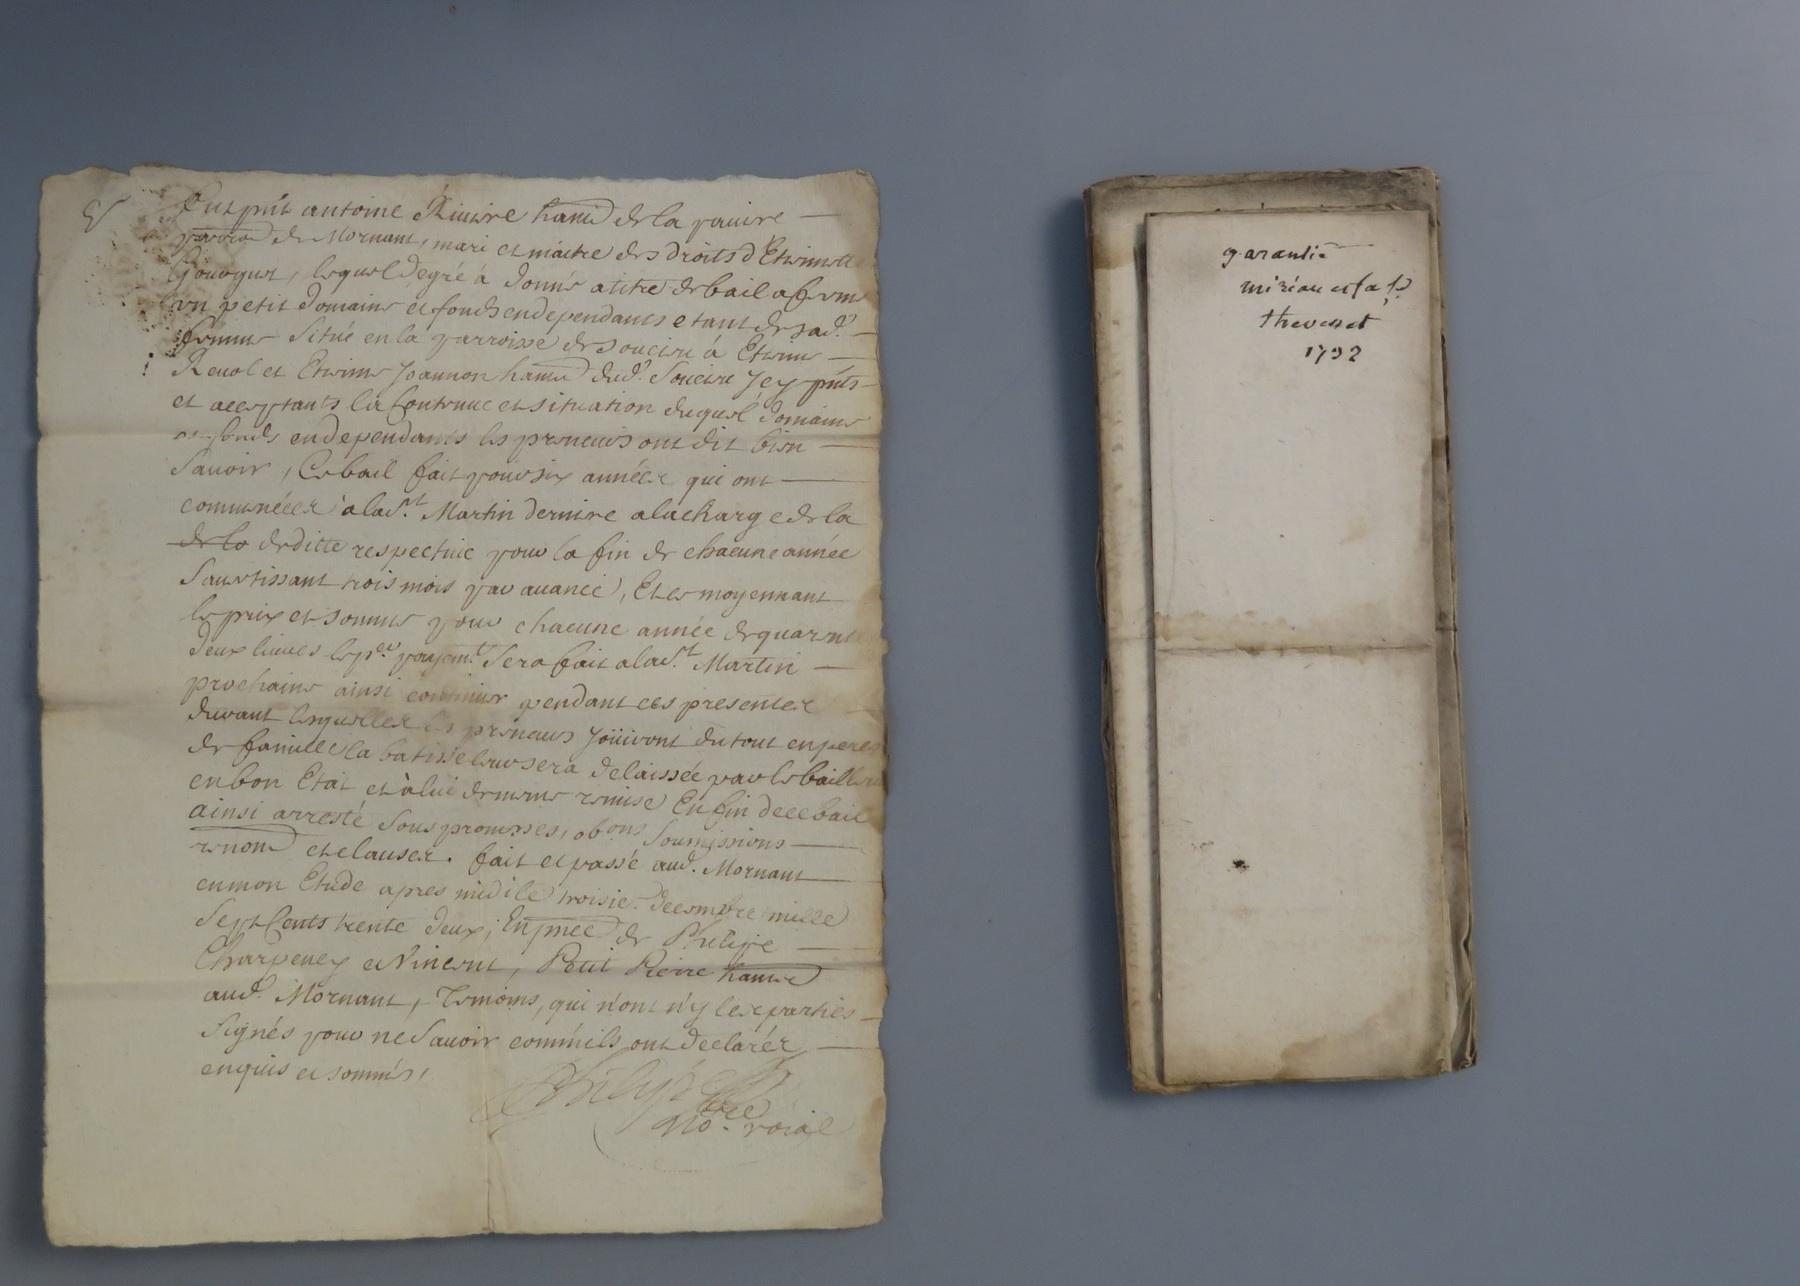 fut pnt antoine Riviere hant de la
parroe de Mornant, mari et maitre des droits d'Etiennette
lequel degré à donné a titre de bail a ferme
un petit domaine et fonds endependants etant de sad.
femme Situé en la parroisse de Soucieu à Etienne
Revol et Etienne Joannon hant dud. Soucieu Jcy pnts
et acceptants la Contenue et situation duquel domaine
et fonds endependants les preneurs ont dit bien
Savoir, Ce bail fait pour six années qui ont
commencées à la St. Martin derniere a la charge de la
de la deditte respective pour la fin de chacune année
S'avertissant trois mois par avance, Et ce moyennant
le prix et somme pour chacune année de quarente
deux livres le pr. payemt. Sera fait a la St. Martin
prochaine ainsi continuer pendant ces presentes
durant lesquelles les preneurs Joüiront du tout en peres
de famille la batisse leur sera delaissée par le bailleur
en bon Etat et à lui de meme remise En fin de ce bail
ainsi arresté Sous promesses, obons Soumissions
renond et clauses. fait et passé aud. Mornant
en mon Etude apres midi le troisie. decembre mille
Sept Cents trente deux, En pnce de Philipe
Charpeney et Vincent, Petit Pierre hants
aud. Mornant, Temoins, qui n'ont n'y les parties
Signés pour ne Savoir comm'ils ont declarés
enquis et sommés,
Not. roial
garantie
thevenet
1792